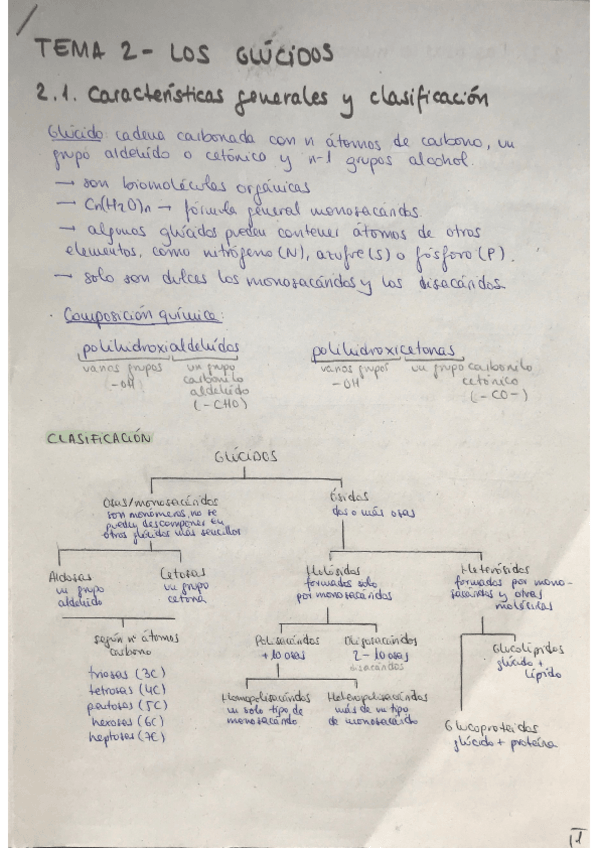 TEMA 2 - LOS GLÚCIDOS
2.1. Características generales y clasificación
Glúcido: cadena carbonada con n átomos de carbono, un
grupo aldehído o cetónico y n-1 grupos alcohol.
→ son biomoléculas orgánicas
→ Cn(H2O)n → fórmula general monosacáridos.
→ algunos glúcidos pueden contener átomos de otros
elementos, como nitrógeno (N), azufre (S) o fósforo (P).
→ solo son dulces los monosacáridos y los disacáridos.
· Composición química:
polihidroxialdehídos
varios grupos -OH
un grupo carbonilo aldehído (-CHO)
polihidroxicetonas
varios grupos -OH
un grupo carbonilo cetónico (-CO-)
CLASIFICACIÓN
GLÚCIDOS
Osas/monosacáridos
son monómeros, no se
pueden descomponer en
otros glúcidos más sencillos
Ósidos
dos o más osas
Aldosas
un grupo
aldehído
Cetosas
un grupo
cetona
según nº átomos
carbono
triosas (3C)
tetrosas (4C)
pentosas (5C)
hexosas (6C)
heptosas (7C)
Holósidos
formados solo
por monosacáridos
Heterósidos
formados por mono-
sacáridos y otras
moléculas
Polisacáridos
+10 osas
Oligosacáridos
2-10 osas
disacáridos
Homopolisacáridos
un solo tipo de
monosacárido
Heteropolisacáridos
más de un tipo
de monosacárido
Glucolípidos
glúcido +
lípido
Glucoproteidos
glúcido + proteína
1